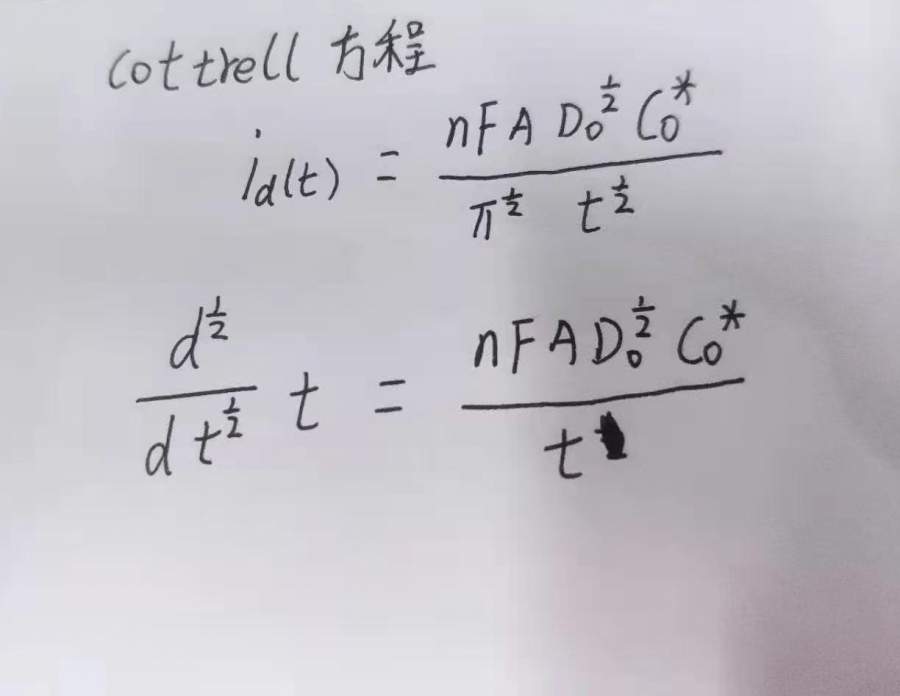 Cottrell 方程
i_d(t) = \frac{nFA D_0^{\frac{1}{2}} C_0^*}{\pi^{\frac{1}{2}} t^{\frac{1}{2}}}
\frac{d^{\frac{1}{2}}}{d t^{\frac{1}{2}}} t = \frac{nFA D_0^{\frac{1}{2}} C_0^*}{t}